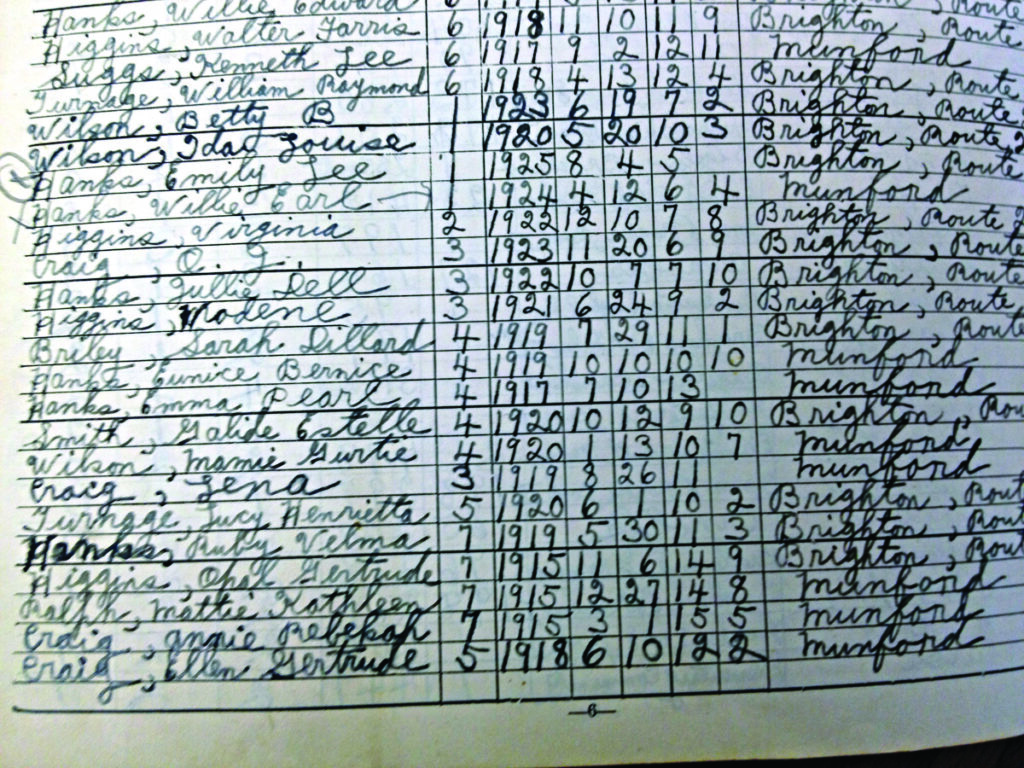 Hanks, Willie Edward 6
Higgins, Walter Farris 6 1918 11 10 11 9 Brighton, Route
Suggs, Kenneth Lee 6 1917 9 2 12 11 Munford
Turnage, William Raymond 6 1918 4 13 12 4 Brighton, Route
Wilson, Betty B 1 1923 6 19 7 2 Brighton, Route
Wilson, Louise 1 1920 5 20 10 3 Brighton, Route 2
Hanks, Emily Lee 1 1925 8 4 5 Brighton, Route
Hanks, Willie Earl 1 1924 4 12 6 4 Munford
Higgins, Virginia 2 1922 12 10 7 8 Brighton, Route 2
Craig, O. G. 3 1923 11 20 6 9 Brighton, Route
Hanks, Dell 3 1922 10 7 7 10 Brighton, Route
Higgins, Modene 3 1921 6 24 9 2 Brighton, Route
Briley, Sarah Dillard 4 1919 7 29 11 1 Brighton, Route
Hanks, Eunice Bernice 4 1919 10 10 10 10 Munford
Hanks, Emma Pearl 4 1917 7 10 13 Munford
Smith, Galide Estelle 4 1920 10 12 9 10 Brighton, Rou
Wilson, Mamie Gurtie 4 1920 1 13 10 7 Munford
Craig, Lena 3 1919 8 26 11 Munford
Turngge, Lucy Henrietta 5 1920 6 1 10 2 Brighton, Rout
Hanks, Ruby Velma 7 1919 5 30 11 3 Brighton, Rout
Higgins, Opal Gertrude 7 1915 11 6 14 9 Brighton, Rout
Ralph, Mattie Kathleen 7 1915 12 27 14 8 Munford
Craig, Annie Rebekah 7 1915 3 1 15 5 Munford
Craig, Ellen Gertrude 5 1918 6 10 12 2 Munford
—6—